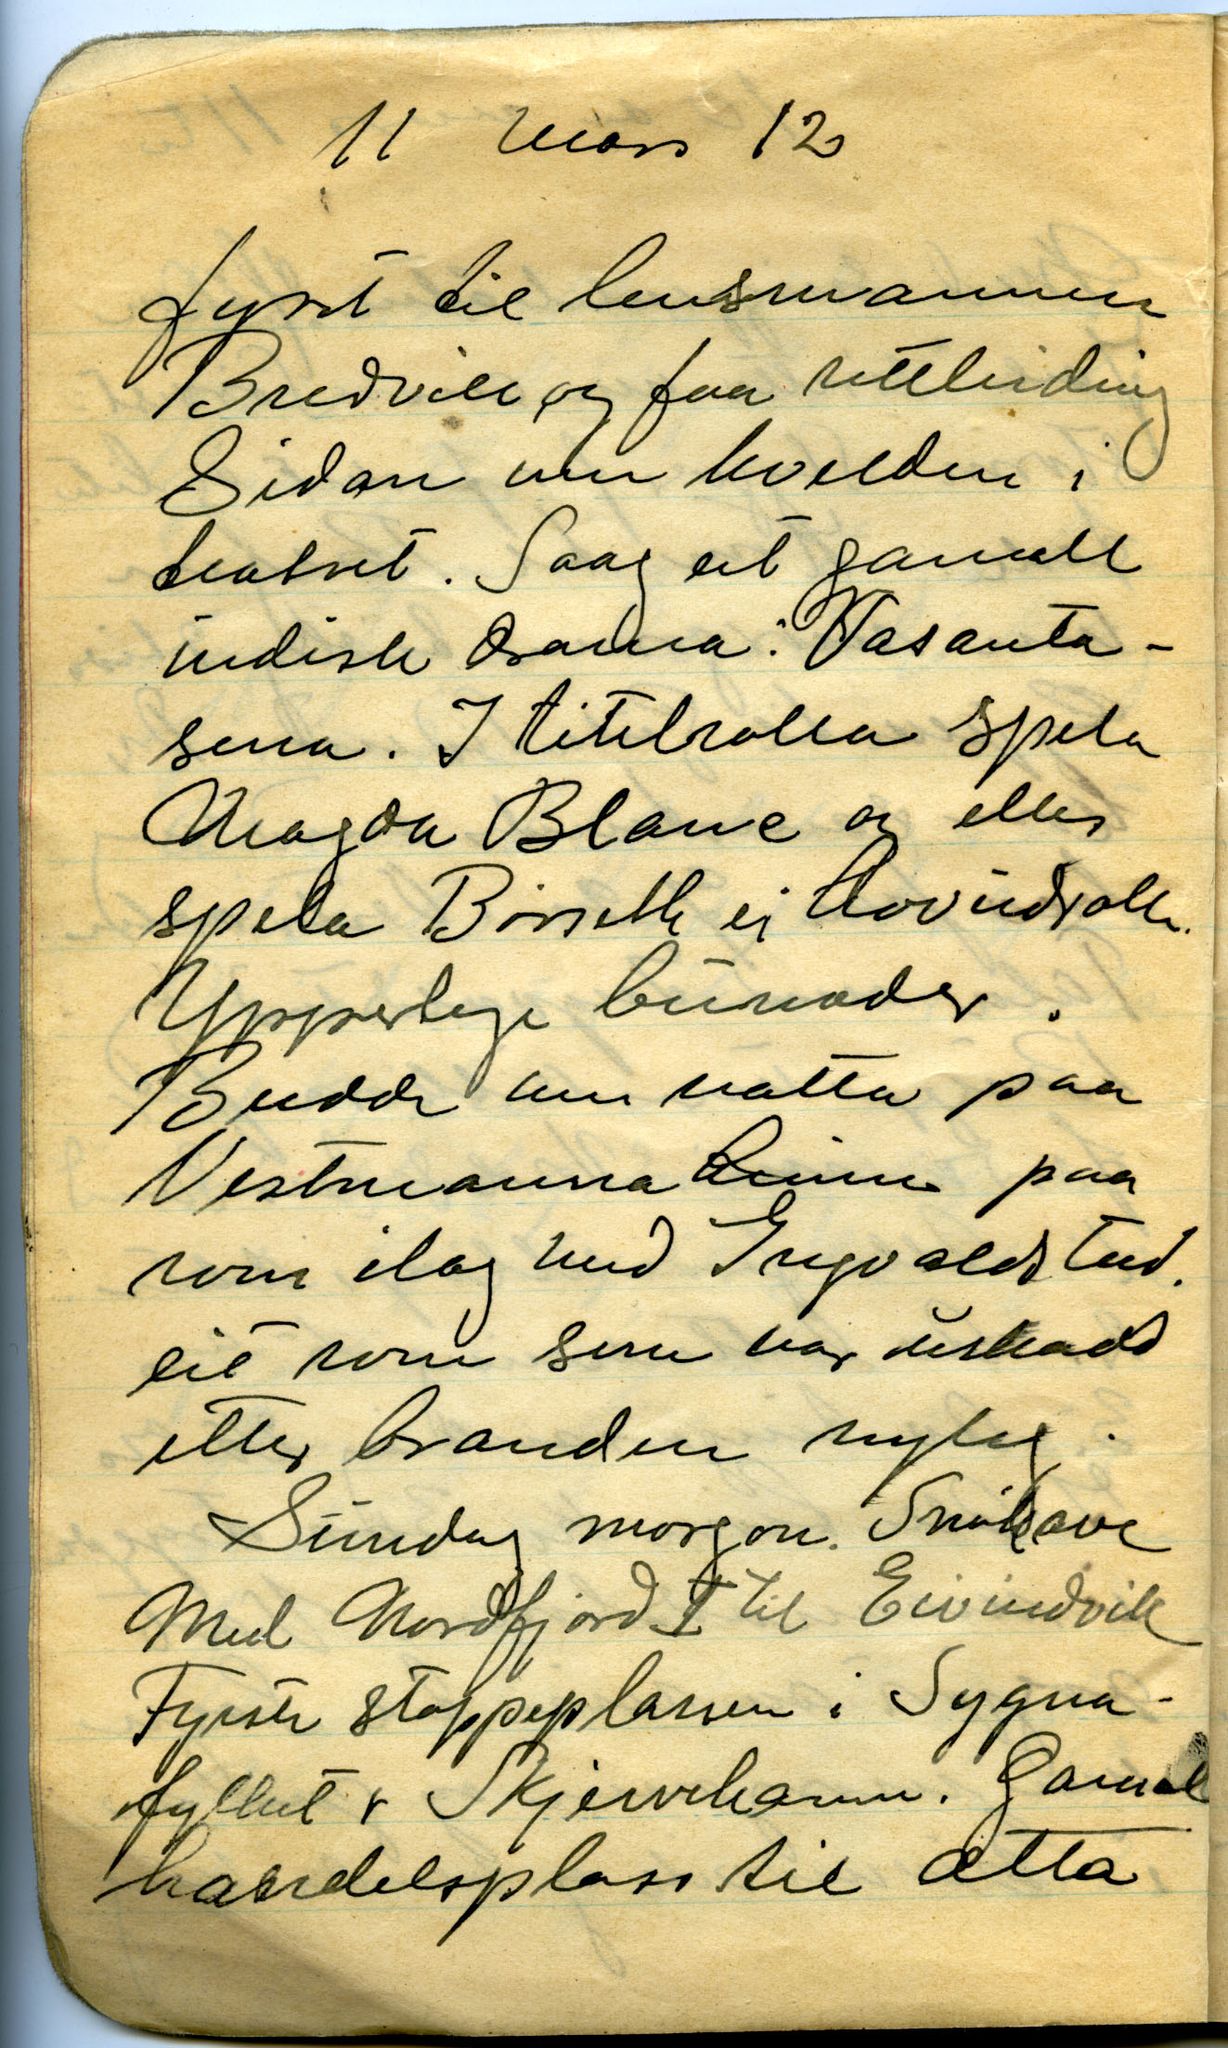 11 mars 12
fyrst til lensmannen
Bredvik og faa rettleiding
Sidan um kvelden i
teatret. Saag eit gamalt
indisk drama: Vasanta-
sena. I titelrolla spela
Magda Blanc og elles
spela Børseth ei hovudrolle.
Ypperlege bunader.
Budde um natta paa
Vestmannaheimen paa
rom ilag med Ingvaldstad.
eit rom som var uskadd
etter branden nyleg.
Sundag morgon. Snøkave
Med Nordfjord I til Eivindvik
Fyrste stoppeplassen i Sygna-
fylket er Skjerjehamn. Gamal
handelsplass til ætta